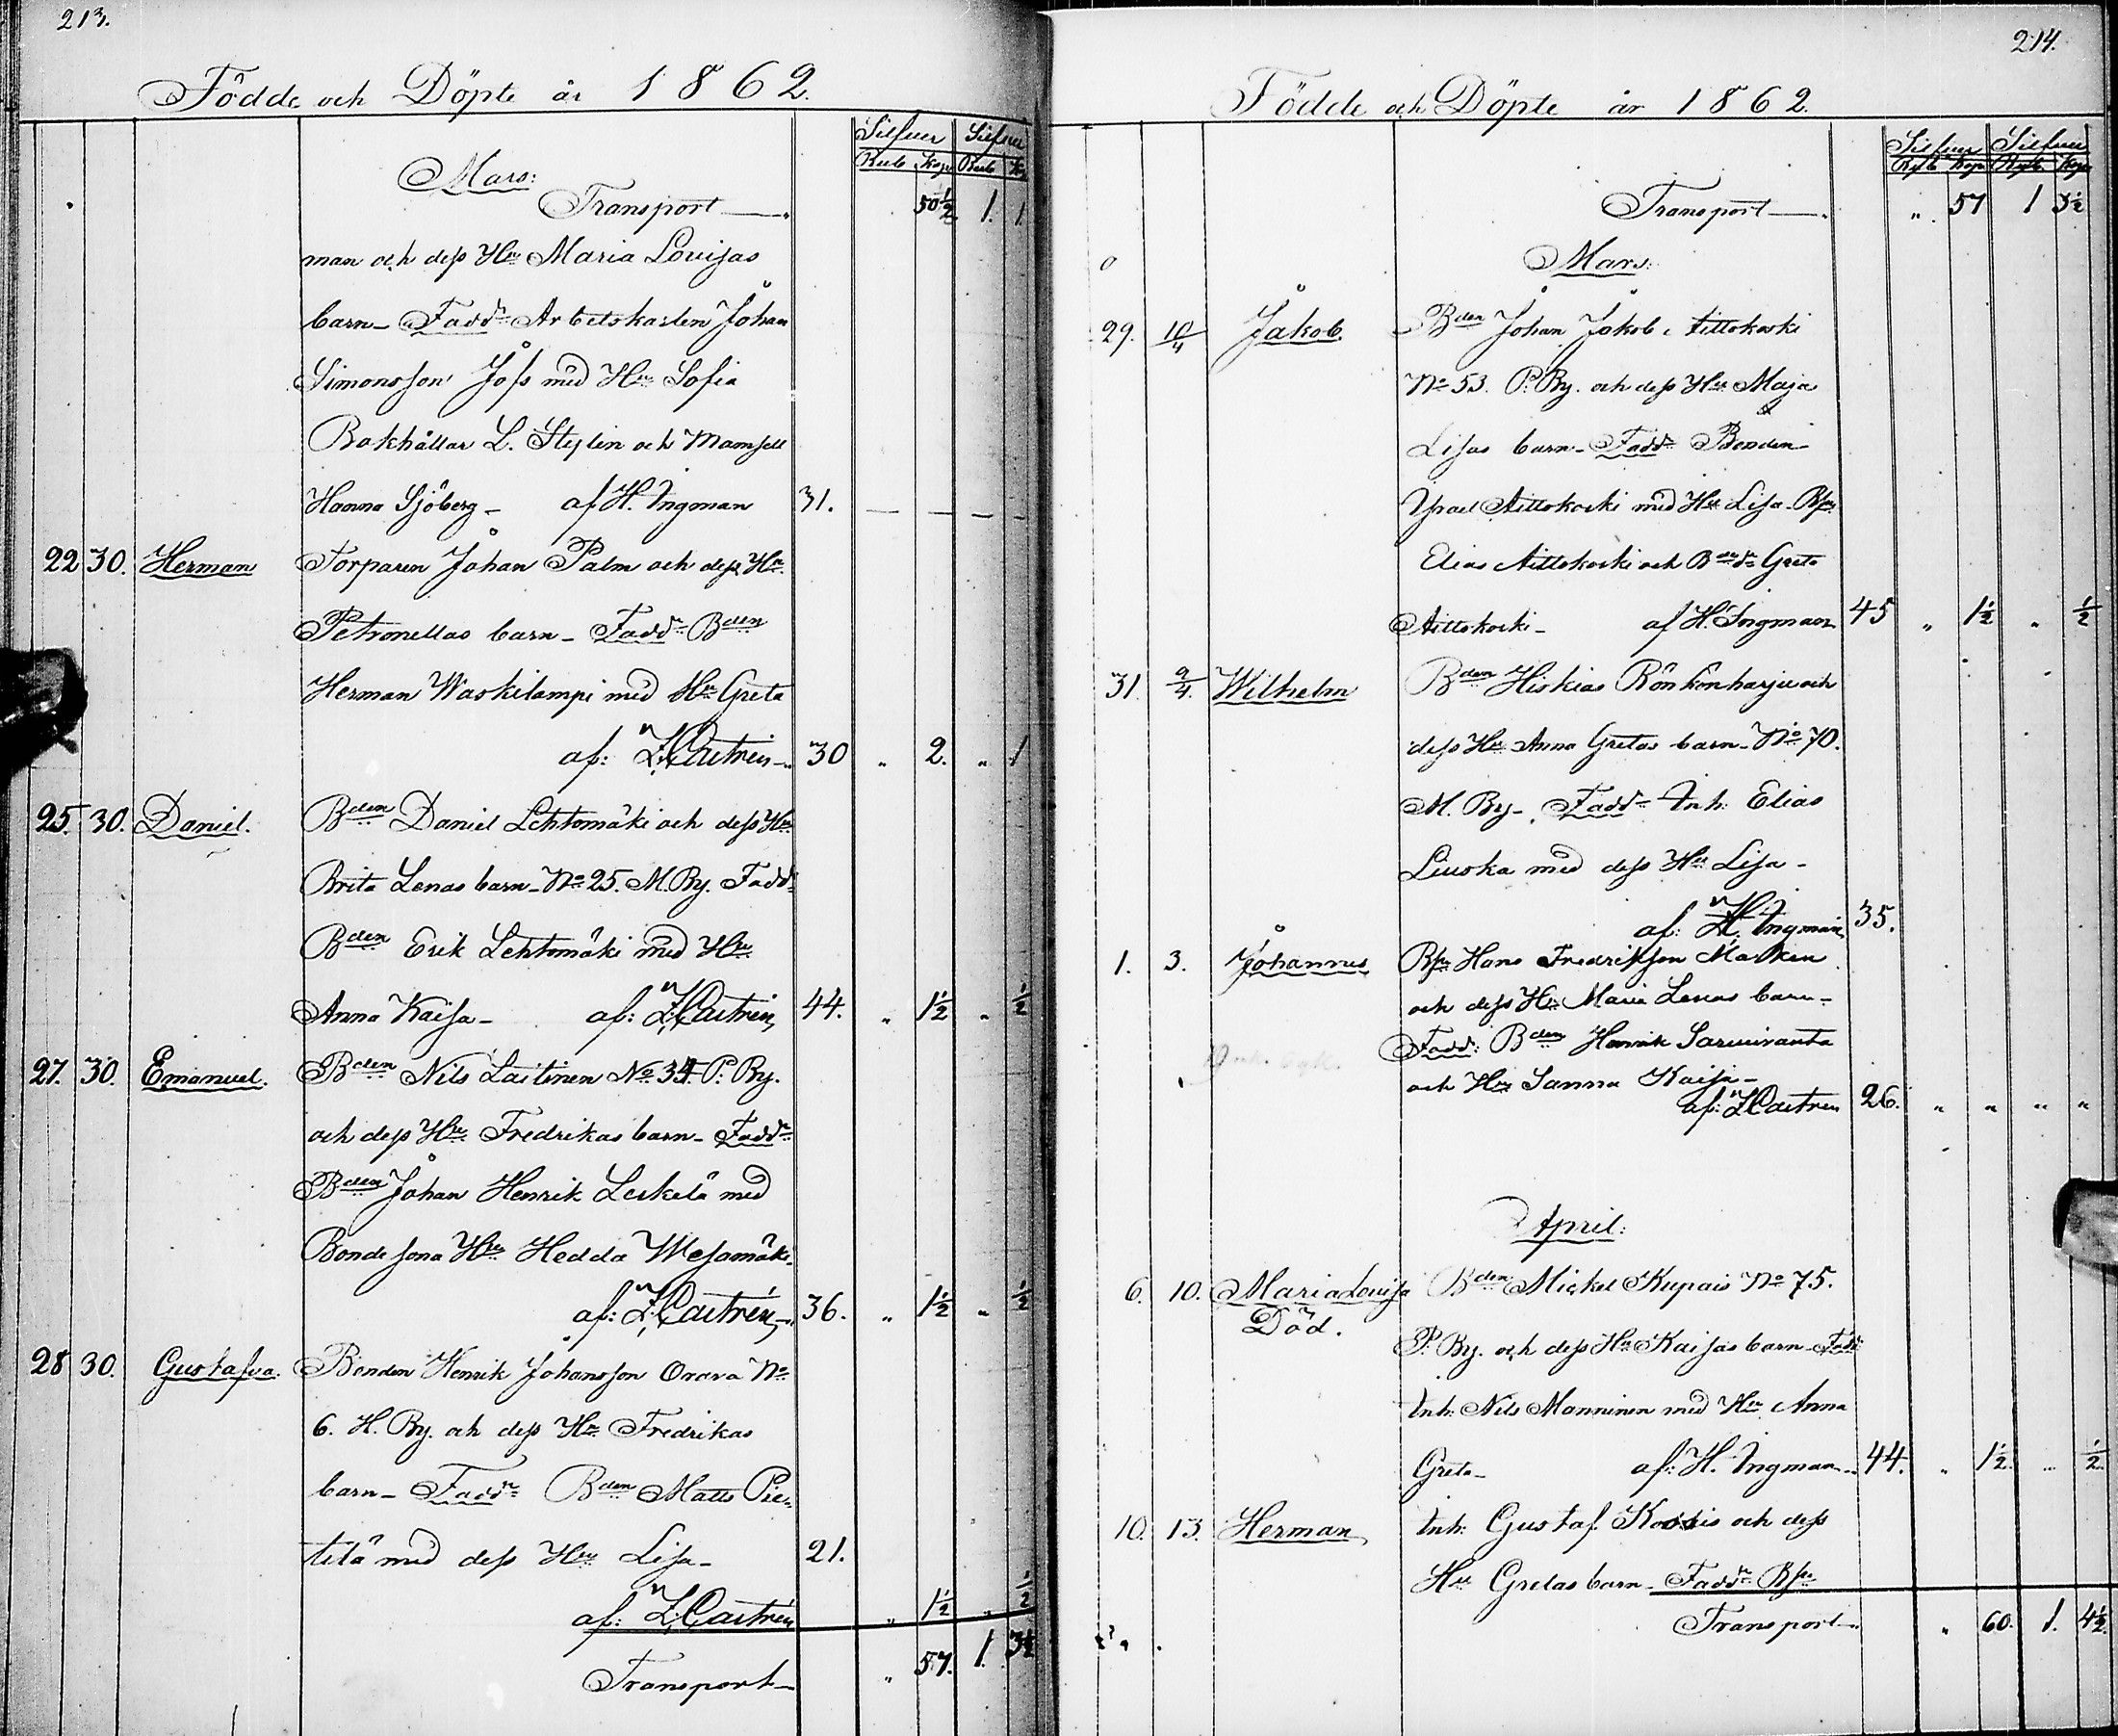 213.
Födde och Döpte år 1862.
Silfver Silfver
Rub Kop Rub K
Mars:
Transport — 50½ 1. 1
man och dess Hu Maria Lovisas
barn – Fadd: Arbetskarlen Johan
Simonsson Joss med Hu Sofia
Bokhållar L. Stylin och Mamsell
Hanna Sjöberg – af H. Ingman 31. — — — —
22 30. Herman Torparen Johan Palm och dess Hu
Petronellas barn – Fadd: Bden
Herman Waskilampi med Hu Greta
af: Z. Castrén – 30 „ 2. „ 1
25. 30. Daniel. Bden Daniel Lehtomäki och dess Hu
Brita Lenas barn – No 25. M. By. Fadd:
Bden Erik Lehtomäki med Hu
Anna Kaisa – af: Z. Castrén, 44. „ 1½ „ ½
27. 30. Emanuel. Bden Nils Laitinen No 34 P. By.
och dess Hu Fredrikas barn – Fadd:
Bden Johan Henrik Leskelä med
Bondesona Hu Hedda Wesamäki
af: Z. Castrén, 36. „ 1½ „ ½
28 30. Gustafva. Bonden Henrik Johansson Orava No
6. H. By. och dess Hu Fredrikas
barn – Fadd: Bden Matts Pie-
tilä med dess Hu Lisa – 21.
af: Z. Castrén „ 1½ „ ½
Transport – „ 57. 1. 3½
214.
Födde och Döpte år 1862.
Silfver Silfver
Rub Kop Rub Kop
Transport — „ 57 1 3½
Mars:
29. 10/4 Jakob. Bden Johan Jakob Aittokoski
No 53. P. By. och dess Hu Maja
Lisas barn – Fadd: Bonden
Israel Aittokoski med Hu Lisa. Bsn
Elias Aittokoski och Bdr Greta
Aittokoski – af H. Ingman 45 „ 1½ „ ½
31. 9/4. Wilhelm Bden Hiskias Rönkönharju och
dess Hu Anna Gretas barn – No 70.
M. By – Fadd: Inh: Elias
Liuska med dess Hu Lisa –
af: H. Ingman, 35.
1. 3. Johannes Bsn Hans Fredriksson Malken
och dess Hu Maria Lenas barn –
Fadd: Bden Henrik Sarviranta
och Hu Sanna Kaisa –
af: Z. Castrén 26. „ „ „ „
April:
6. 10. Maria Lovisa Bden Mickel Kupais No 75.
Död. P. By. och dess Hu Kaisas barn – Fadd:
Inh: Nils Manninen med Hu Anna
Greta – af: H. Ingman – 44. „ 1½. „ ½.
10. 13. Herman Inh: Gustaf och dess
Hu Gretas barn – Fadd: Bsn
Transport – „ 60. 1. 4½.